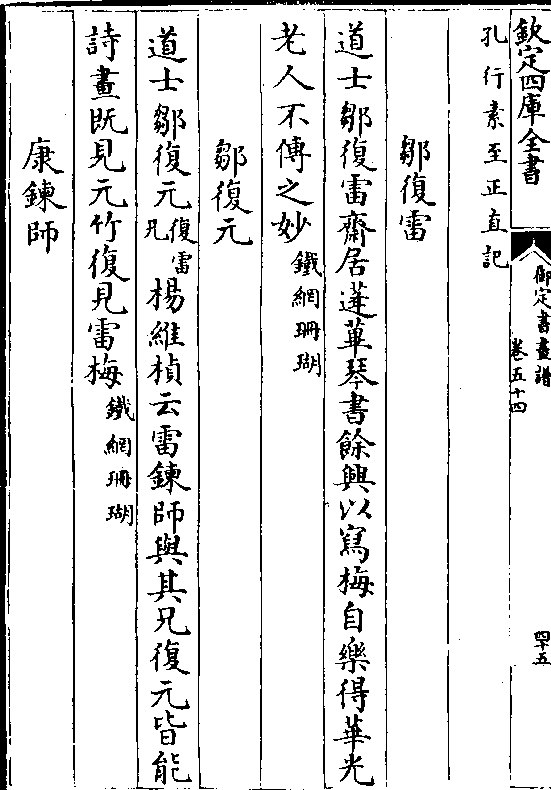 欽定四庫全書
御定書畫譜
卷五十四
四十五
孔行素至正直記
鄒復雷
道士鄒復雷齋居蓬蓽琴書餘興以寫梅自樂得華光
老人不傳之妙鐵網珊瑚
鄒復元
道士鄒復元復雷兄楊維楨云雷鍊師與其兄復元皆能
詩畫既見元竹復見雷梅鐵網珊瑚
康鍊師